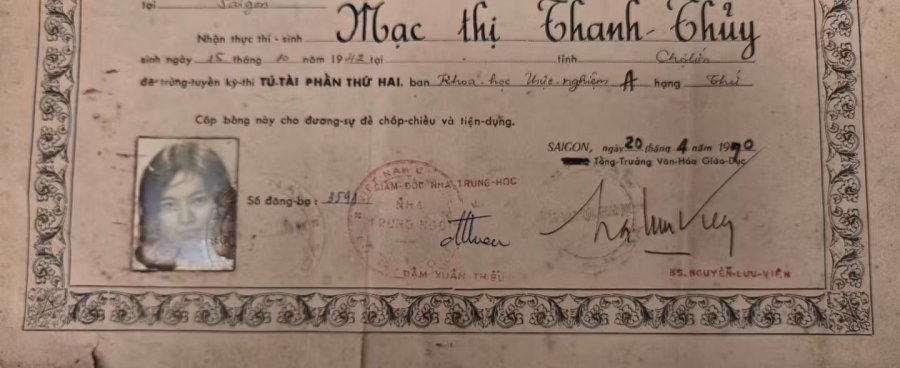 tại Saigon
Nhận thực thí - sinh Mạc thị Thanh-Thủy
sinh ngày 15 tháng 10 năm 1942 tại tỉnh Chợlớn
đã trúng-tuyển kỳ-thi TÚ-TÀI PHẦN THỨ HAI, ban Khoa-học thực-nghiệm A hạng Thứ
Cấp bằng này cho đương-sự để chấp-chiếu và tiện-dụng.
SAIGON, ngày 20 tháng 4 năm 1970
Tổng-Trưởng Văn-Hóa Giáo-Dục
GIÁM-ĐỐC NHA TRUNG-HỌC
Số đăng-bạ :
NHA
TRUNG HỌC
ĐÀM XUÂN THIỀU
BS. NGUYỄN-LƯU-VIÊN